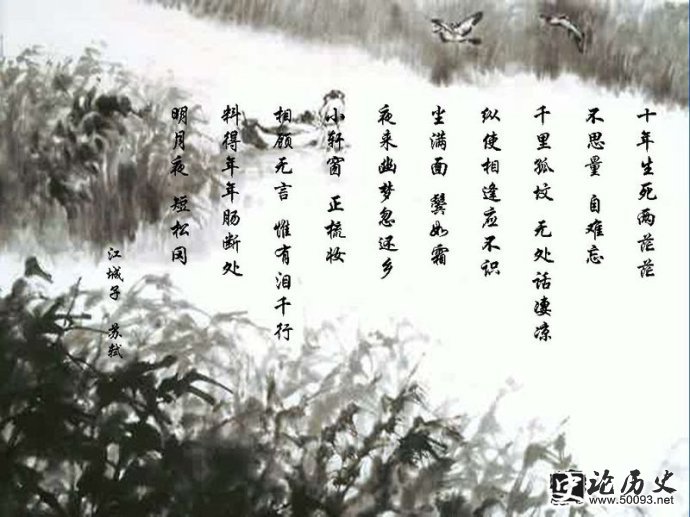 十年生死两茫茫
不思量 自难忘
千里孤坟 无处话凄凉
纵使相逢应不识
尘满面 鬓如霜
夜来幽梦忽还乡
小轩窗 正梳妆
相顾无言 惟有泪千行
料得年年肠断处
明月夜 短松冈
江城子 苏轼
史论历史
www.50093.net